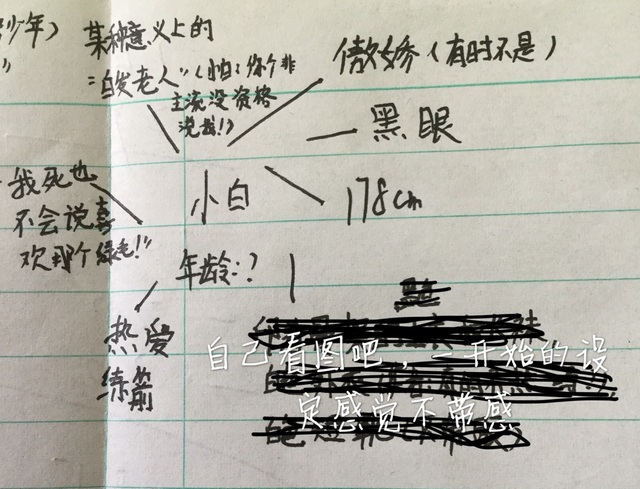 少年）
某种意义上的
"白发老人"（小白：你个非
主流没资格
说我!）
傲娇（有时不是）
黑眼
我死也
不会说喜
欢那个绿毛!"
小白
178cm
年龄:?
热爱
练箭
自己看图吧，一开始的设
定感觉不带感